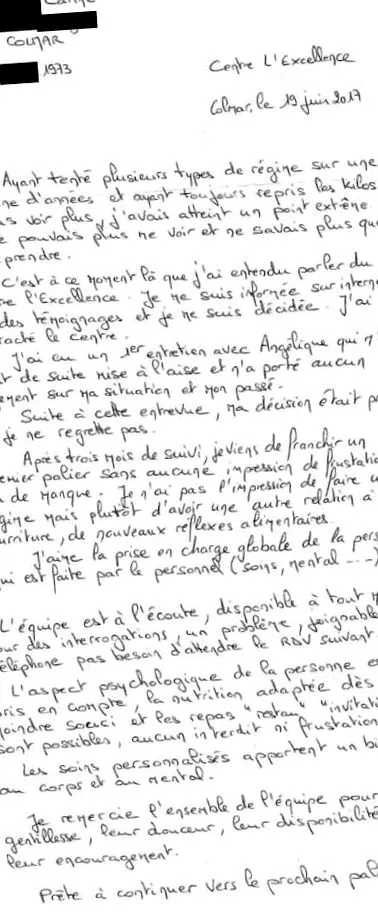 COLMAR
1973
Centre L'Excellence
Colmar, le 19 juin 2017
Ayant tenté plusieurs types de régime sur une
ne d'années et ayant toujours repris les kilos
s voir plus, j'avais atteint un point extrême
e pouvais plus me voir et ne savais plus que
prendre.
C'est à ce moment là que j'ai entendu parler du
re l'Excellence. Je me suis informée sur intern
des témoignages et je me suis décidée. J'ai
tacté le centre.
J'ai eu un 1er entretien avec Angélique qui m'
t de suite mise à l'aise et n'a porté aucun
ement sur ma situation et mon passé.
Suite à cette entrevue, ma décision était p
je ne regrette pas.
Après trois mois de suivi, je viens de franchir un
emier palier sans aucune impression de frustation
u de manque. Je n'ai pas l'impression de faire u
gime mais plutôt d'avoir une autre relation à
urriture, de nouveaux réflexes alimentaires.
J'aime la prise en charge globale de la pers
ui est faite par le personnel (soins, mental ...)
L'équipe est à l'écoute, disponible à tout m
our des interrogations, un problème, joignable
éléphone pas besoin d'attendre le RDV suivant.
L'aspect psychologique de la personne e
pris en compte, la nutrition adaptée dès
moindre souci et les repas "restau" "invitati
sont possibles, aucun interdit ni frustation
Les soins personnalisés apportent un bi
au corps et au mental.
Je remercie l'ensemble de l'équipe pour
gentillesse, leur douceur, leur disponibilité
leur encouragement.
Prête à continuer vers le prochain pal